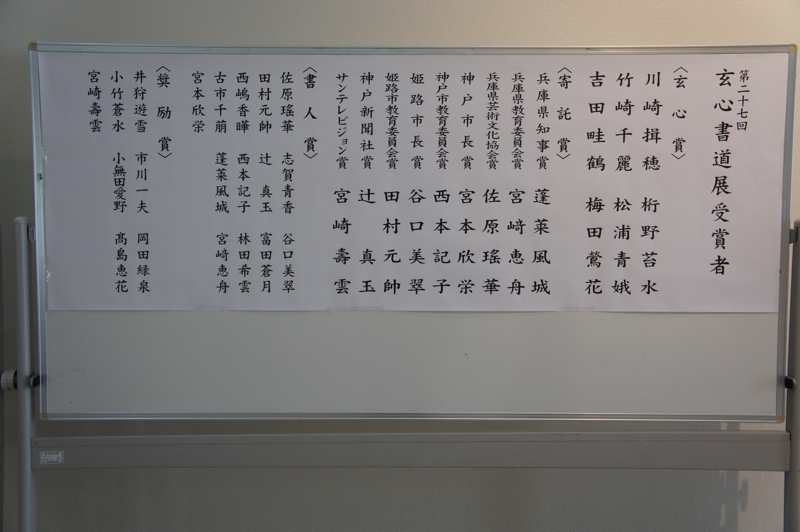 第二十七回
玄心書道展受賞者
〈玄心賞〉
川崎揖穂 桁野苔水
竹崎千麗 松浦青娥
吉田畦鶴 梅田鶯花
〈寄託賞〉
兵庫県知事賞 蓬萊風城
兵庫県教育委員会賞 宮﨑恵舟
兵庫県芸術文化協会賞 佐原瑤華
神戸市長賞 宮本欣栄
神戸市教育委員会賞 西本記子
姫路市長賞 谷口美翠
姫路市教育委員会賞 田村元帥
神戸新聞社賞 辻真玉
サンテレビジョン賞 宮崎壽雲
〈書人賞〉
佐原瑤華 志賀青香 谷口美翠
田村元帥 辻真玉 富田蒼月
西嶋香曄 西本記子 林田希雲
古市千萠 蓬萊風城 宮﨑恵舟
宮本欣栄
〈奨励賞〉
井狩遊雪 市川一夫 岡田緑泉
小竹蒼水 小無田愛野 髙島恵花
宮崎壽雲